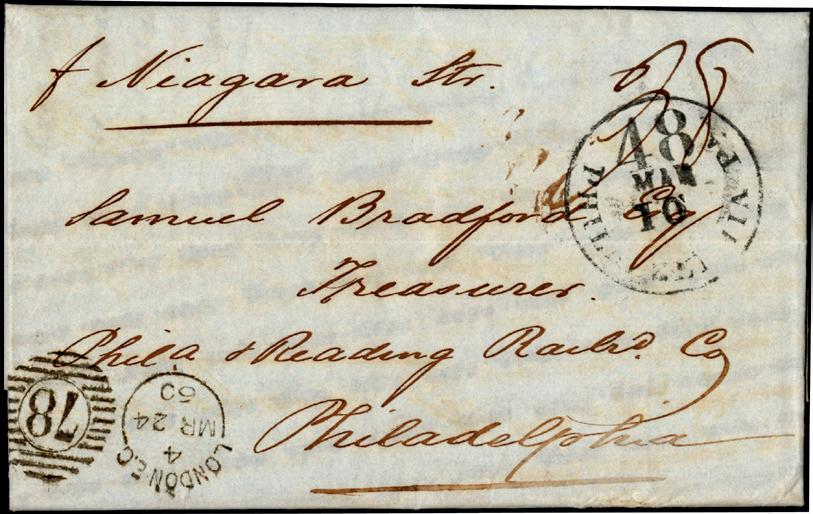 Niagara Str.
48
MAR
10
Samuel Bradford Esq
Treasurer.
Phila & Reading Railrd. Co
Philadelphia
78
LONDON.E.C
4
MR 24
60